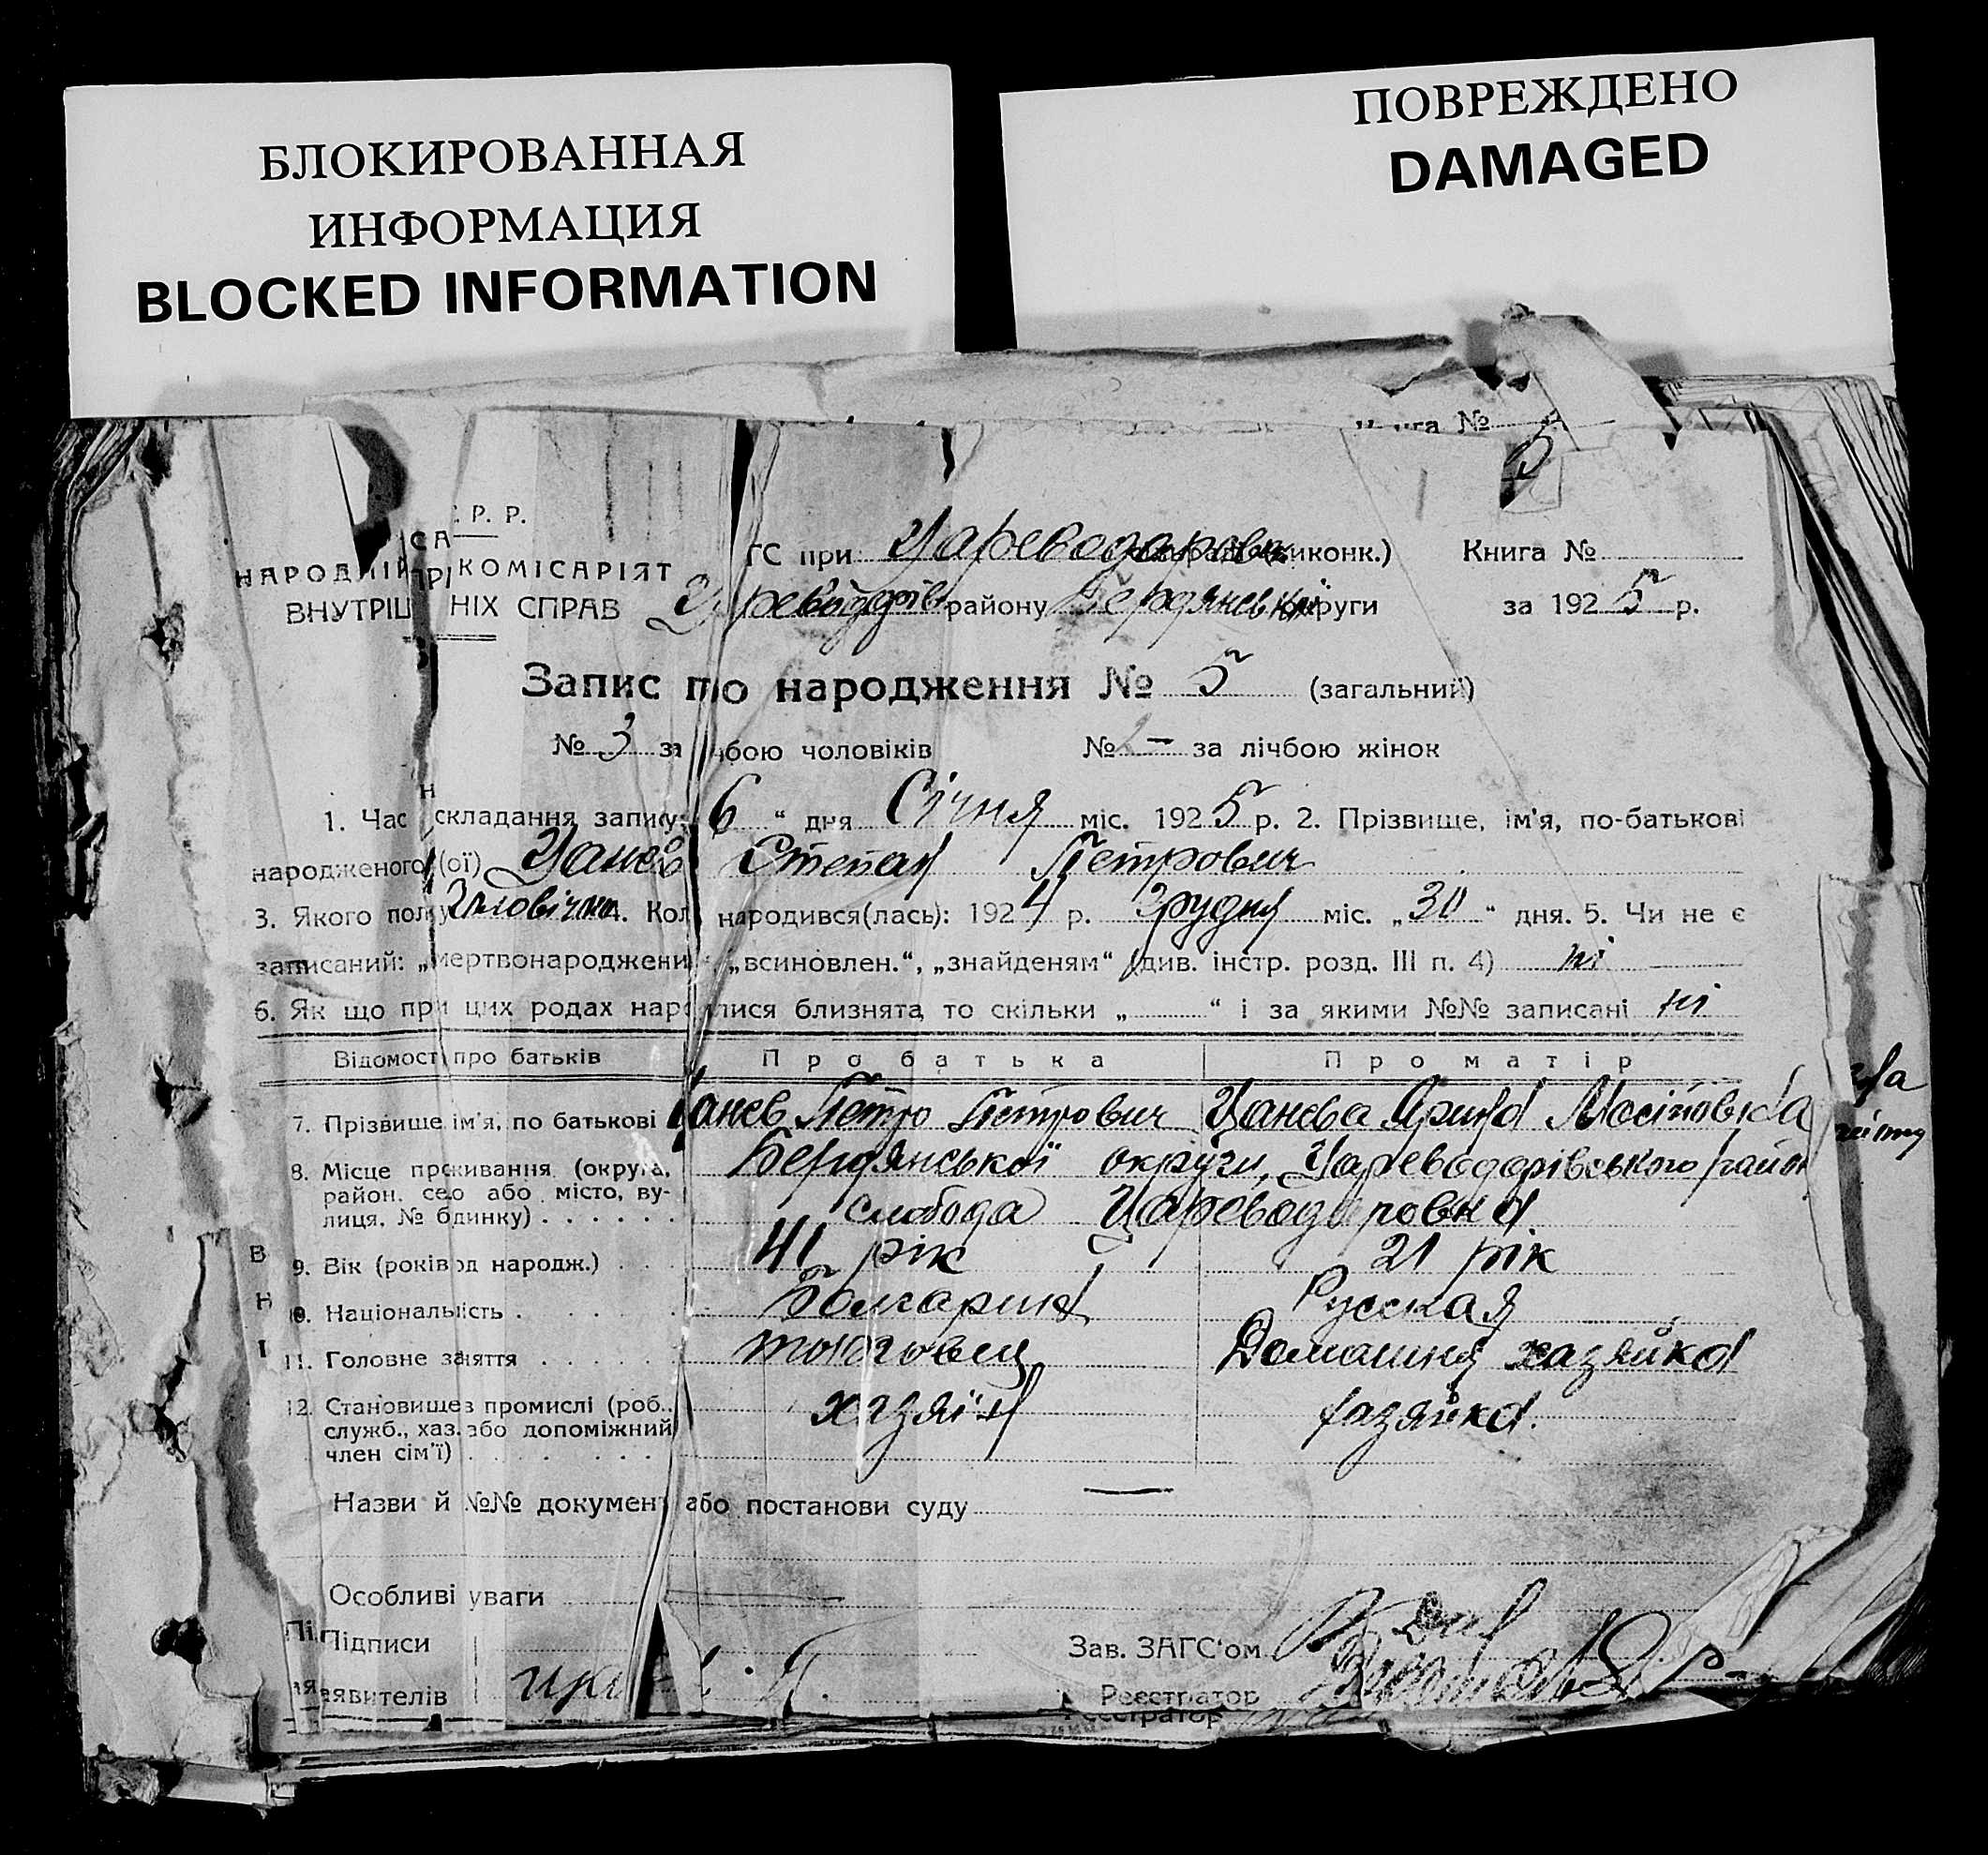 БЛОКИРОВАННАЯ
ИНФОРМАЦИЯ
BLOCKED INFORMATION
ПОВРЕЖДЕНО
DAMAGED
нига №
5
. Р. Р.
НАРОДНІЙ КОМІСАРІЯТ
ВНУТРІШ НІХ СПРАВ
ГС при Цареводаровк виконк.) Книга №
району Бердянської округи за 1925 р.
Запис по народження № 5 (загальний)
№ 3 за чбою чоловіків № — за лічбою жінок
1. Час складання запису: 6 “ дня Січня міс. 1925 р. 2. Прізвище, ім'я, по-батькові
народженого (ої) Цанєв Степан Петрович
3. Якого полу Чоловічка 4. Кол народився(лась): 1924 р. Грудня міс. „30“ дня. 5. Чи не є
записаний: „мертвонароджени „всиновлен.“, „знайденям“ (див. інстр. розд. III п. 4) ні
6. Як що при цих родах нар лися близнята, то скільки „ “ і за якими №№ записані ні
Відомості про батьків Про батька Про матір
7. Прізвище, ім'я, по батькові Цанєв Петро Петрович Цанєва
8. Місце проживання (округа, Бердянської округи, Цареводарівського район
район, село або місто, ву-
лиця, № будинку) слобода Цареводаровка
9. Вік (років од народж.) 41 рік 21 рік
10. Національність Болгарин Русская
11. Головне заняття торговец Домашня хазяйка
12. Становище в промислі (роб., хазяїн хазяйка.
служб., хаз. або допоміжний
член сім'ї)
Назви й №№ документ або постанови суду —
Особливі уваги
Підписи Зав. ЗАГС'ом
заявителів Реєстратор